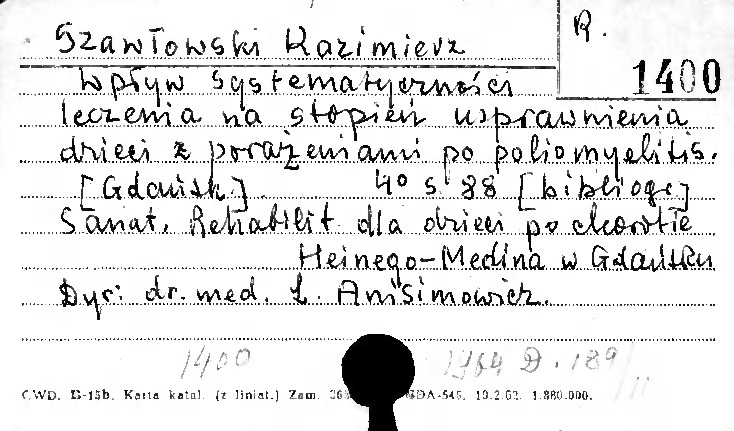 R.
1400
Szawłowski Kazimierz
Wpływ systematyczności
leczenia na stopień usprawnienia
dzieci z porażeniami po poliomyelitis.
[Gdańsk] 4° s. 88 [bibliogr]
Sanat. Rehabilit. dla dzieci po chorobie
Heinego-Medina w Gdańsku
Dyr: dr. med. L. Anisimowicz.
1400 1964 D. 189/11
CWD. B-15b. Karta katal. (z liniat.) Zam. GDA-545. 10.2.62. 1.880.000.